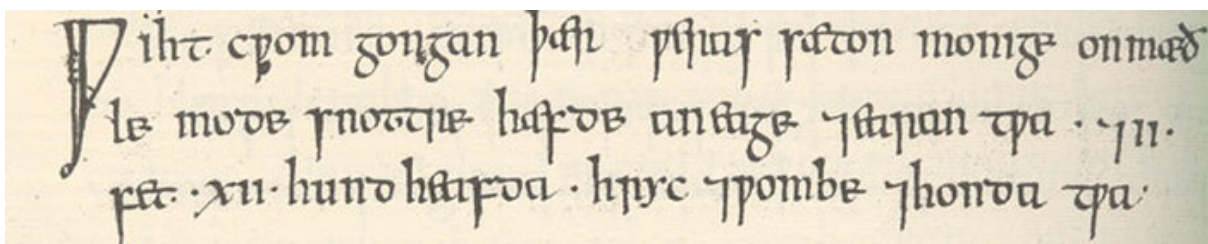 Ƿiht cƿom gongan þær ƿeras sæton monige onmæð
le mode snottre hæfde aneage ⁊earan tƿa · ⁊ii·
fet ·xii· hund heafda · hryc ⁊ƿombe ⁊honda tƿa·